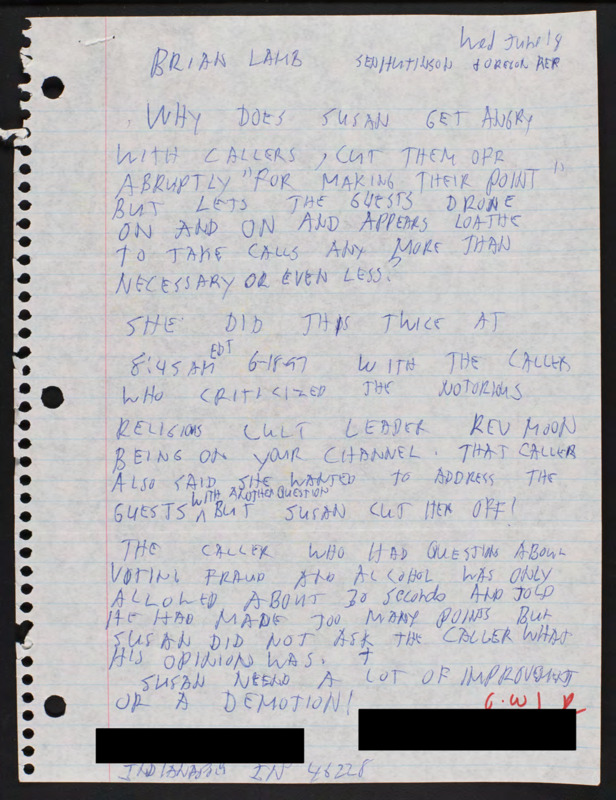 Wed June 18
BRIAN LAMB SEN HUTINSON & OREGON REP
WHY DOES SUSAN GET ANGRY
WITH CALLERS, CUT THEM OFF
ABRUPTLY "FOR MAKING THEIR POINT"
BUT LETS THE GUESTS DRONE
ON AND ON AND APPEARS LOATHE
TO TAKE CALLS ANY MORE THAN
NECESSARY OR EVEN LESS?
SHE DID THIS TWICE AT
8:45 AM EDT 6-18-97 WITH THE CALLER
WHO CRITICIZED THE NOTORIOUS
RELIGIOUS CULT LEADER REV MOON
BEING ON YOUR CHANNEL. THAT CALLER
ALSO SAID SHE WANTED TO ADDRESS THE
GUESTS WITH ANOTHER QUESTION BUT SUSAN CUT HER OFF!
THE CALLER WHO HAD QUESTION ABOUT
VOTING FRAUD AND ALCOHOL WAS ONLY
ALLOWED ABOUT 30 SECONDS AND TOLD
HE HAD MADE TOO MANY POINTS BUT
SUSAN DID NOT ASK THE CALLER WHAT
HIS OPINION WAS.
SUSAN NEED A LOT OF IMPROVEMENT
OR A DEMOTION!
IN 46228